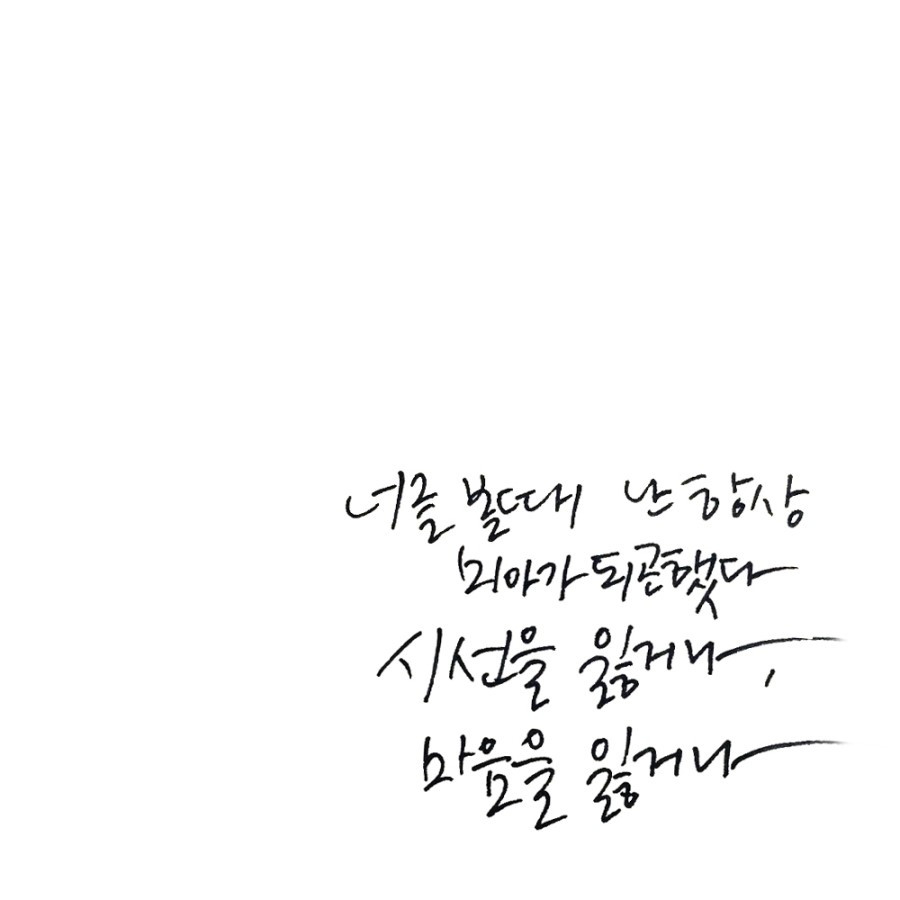 너를 볼때 난 항상
미아가 되곤했다
시선을 잃거나,
마음을 잃거나